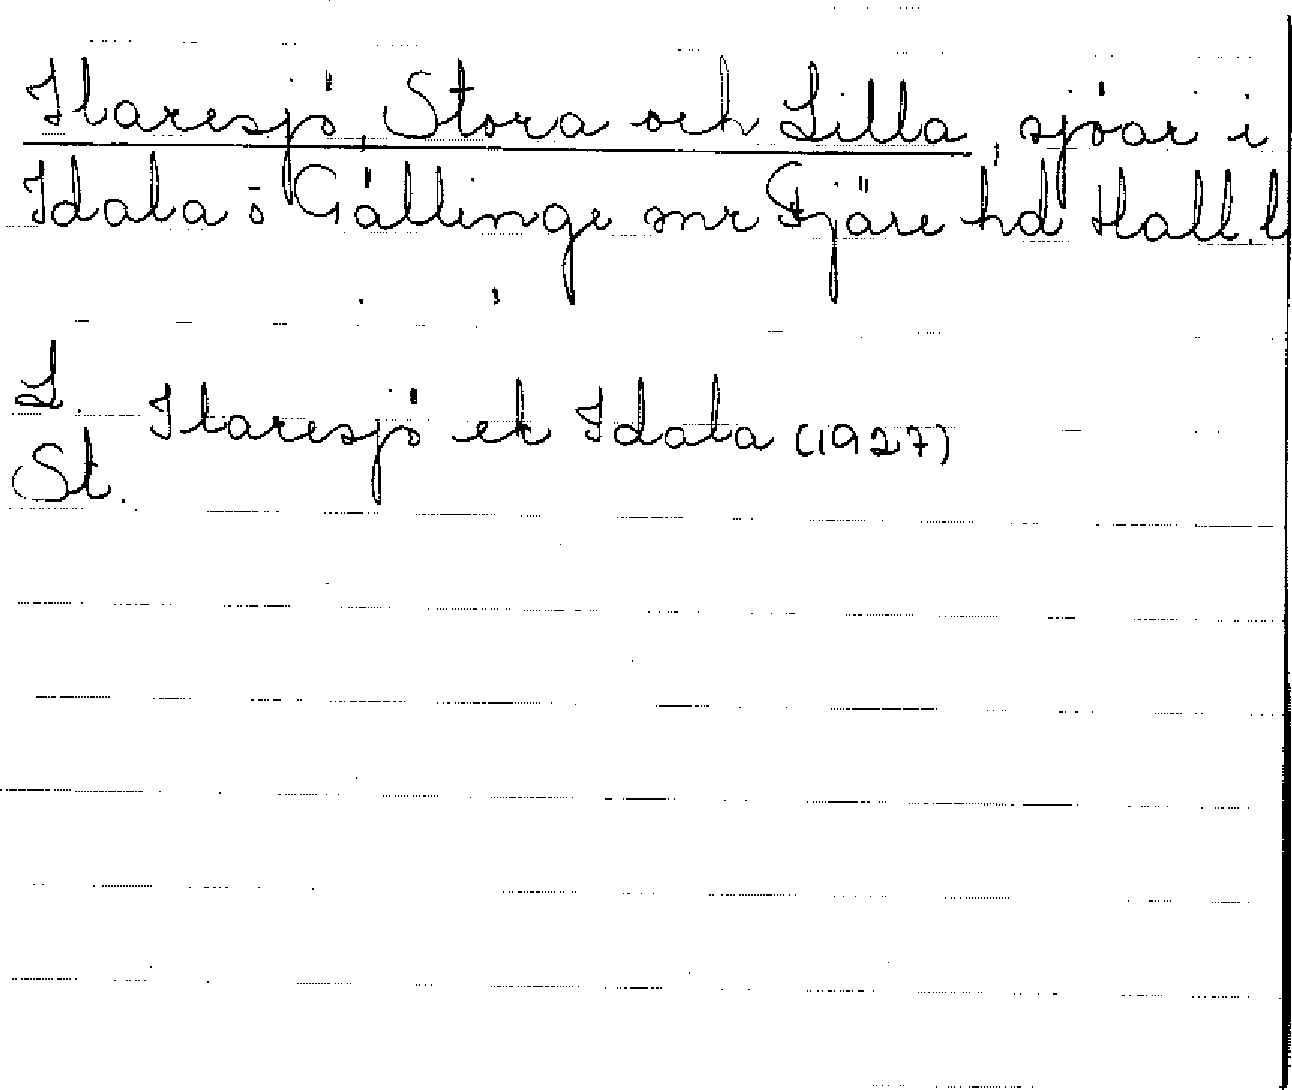 Ilaresjö, Stora och Lilla, sjöar i
Idala o Gällinge snr Fjäre hd Hall. l
L.
Ilaresjö ek Idala (1927)
St.